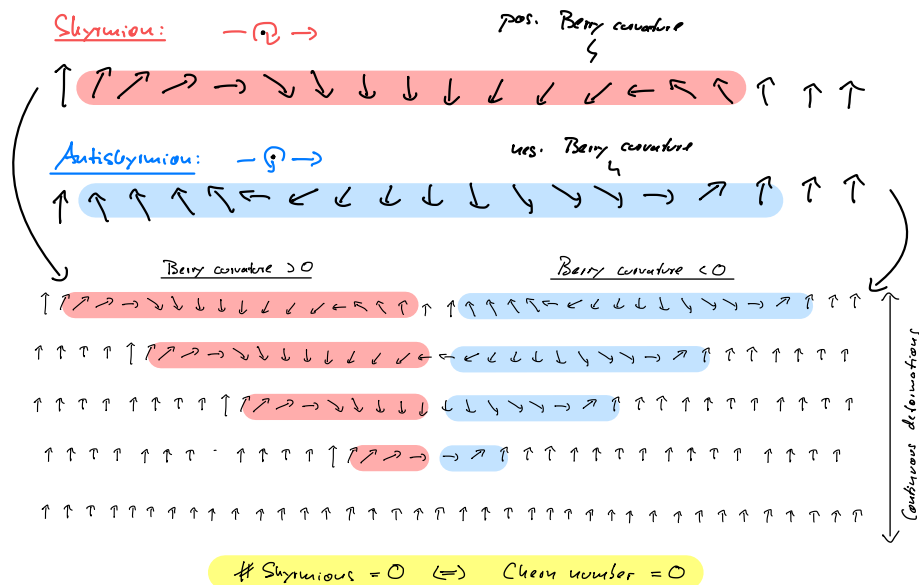 Skyrmion:
pos. Berry curvature
Antiskyrmion:
neg. Berry curvature
Berry curvature > 0
Berry curvature < 0
Continuous deformations
# Skyrmions = 0 <=> Chern number = 0